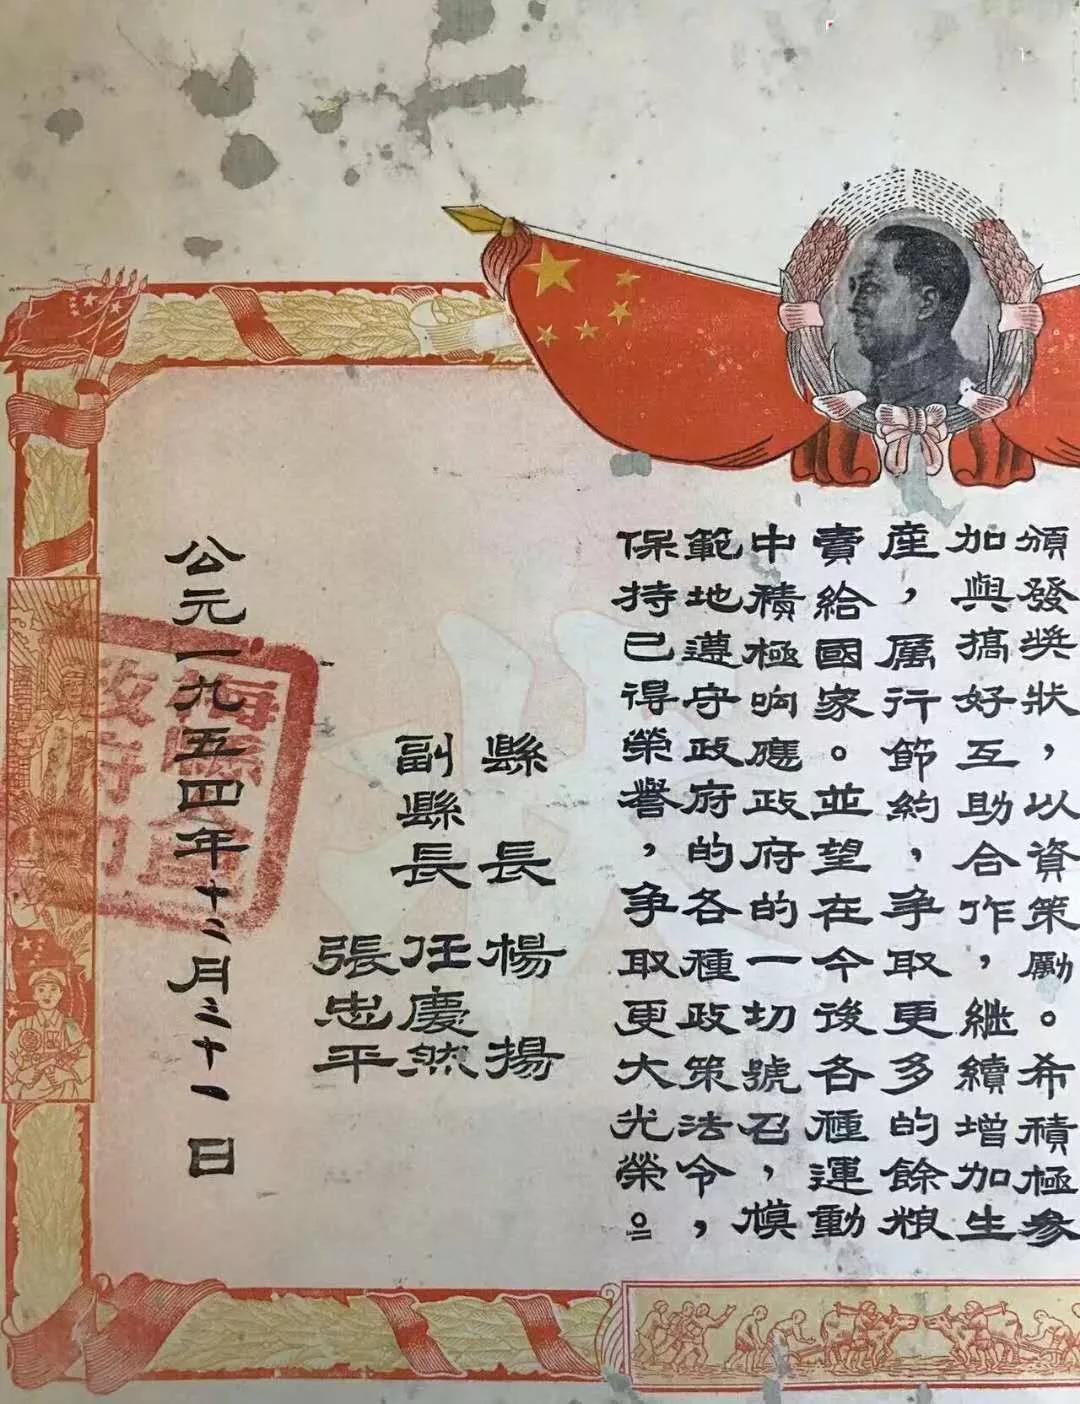 頒發奖狀，以資策勵。希積極参
加與搞好互助合作，継續增加生
産，厲行節約，争取更多的餘粮
賣給國家。並望在今後各種運動
中積極响應政府的一切號召，模
範地遵守政府的各種政策法令，
保持已得榮譽，争取更大光榮！
縣長 楊揚
副縣長 任慶然
張忠平
公元一九五四年十二月三十一日
政府印